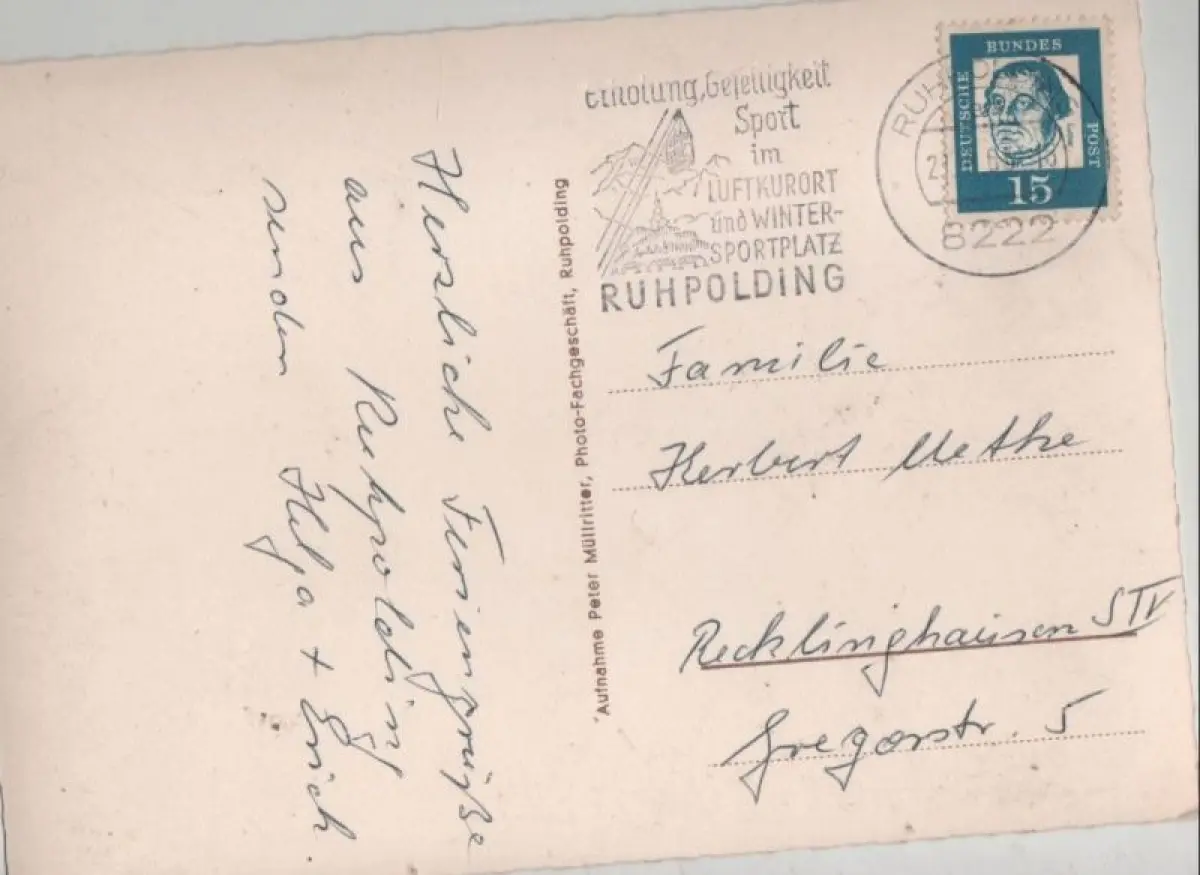 Herzliche Feriengrüße
aus Ruhpolding
senden Helga + Erich.
Aufnahme Peter Müllritter, Photo-Fachgeschäft, Ruhpolding
Erholung, Geselligkeit
Sport
im
LUFTKURORT
und WINTER-
SPORTPLATZ
RUHPOLDING
8222
DEUTSCHE
BUNDES
POST
15
Familie
Herbert Methe
Recklinghausen
Gregorstr. 5